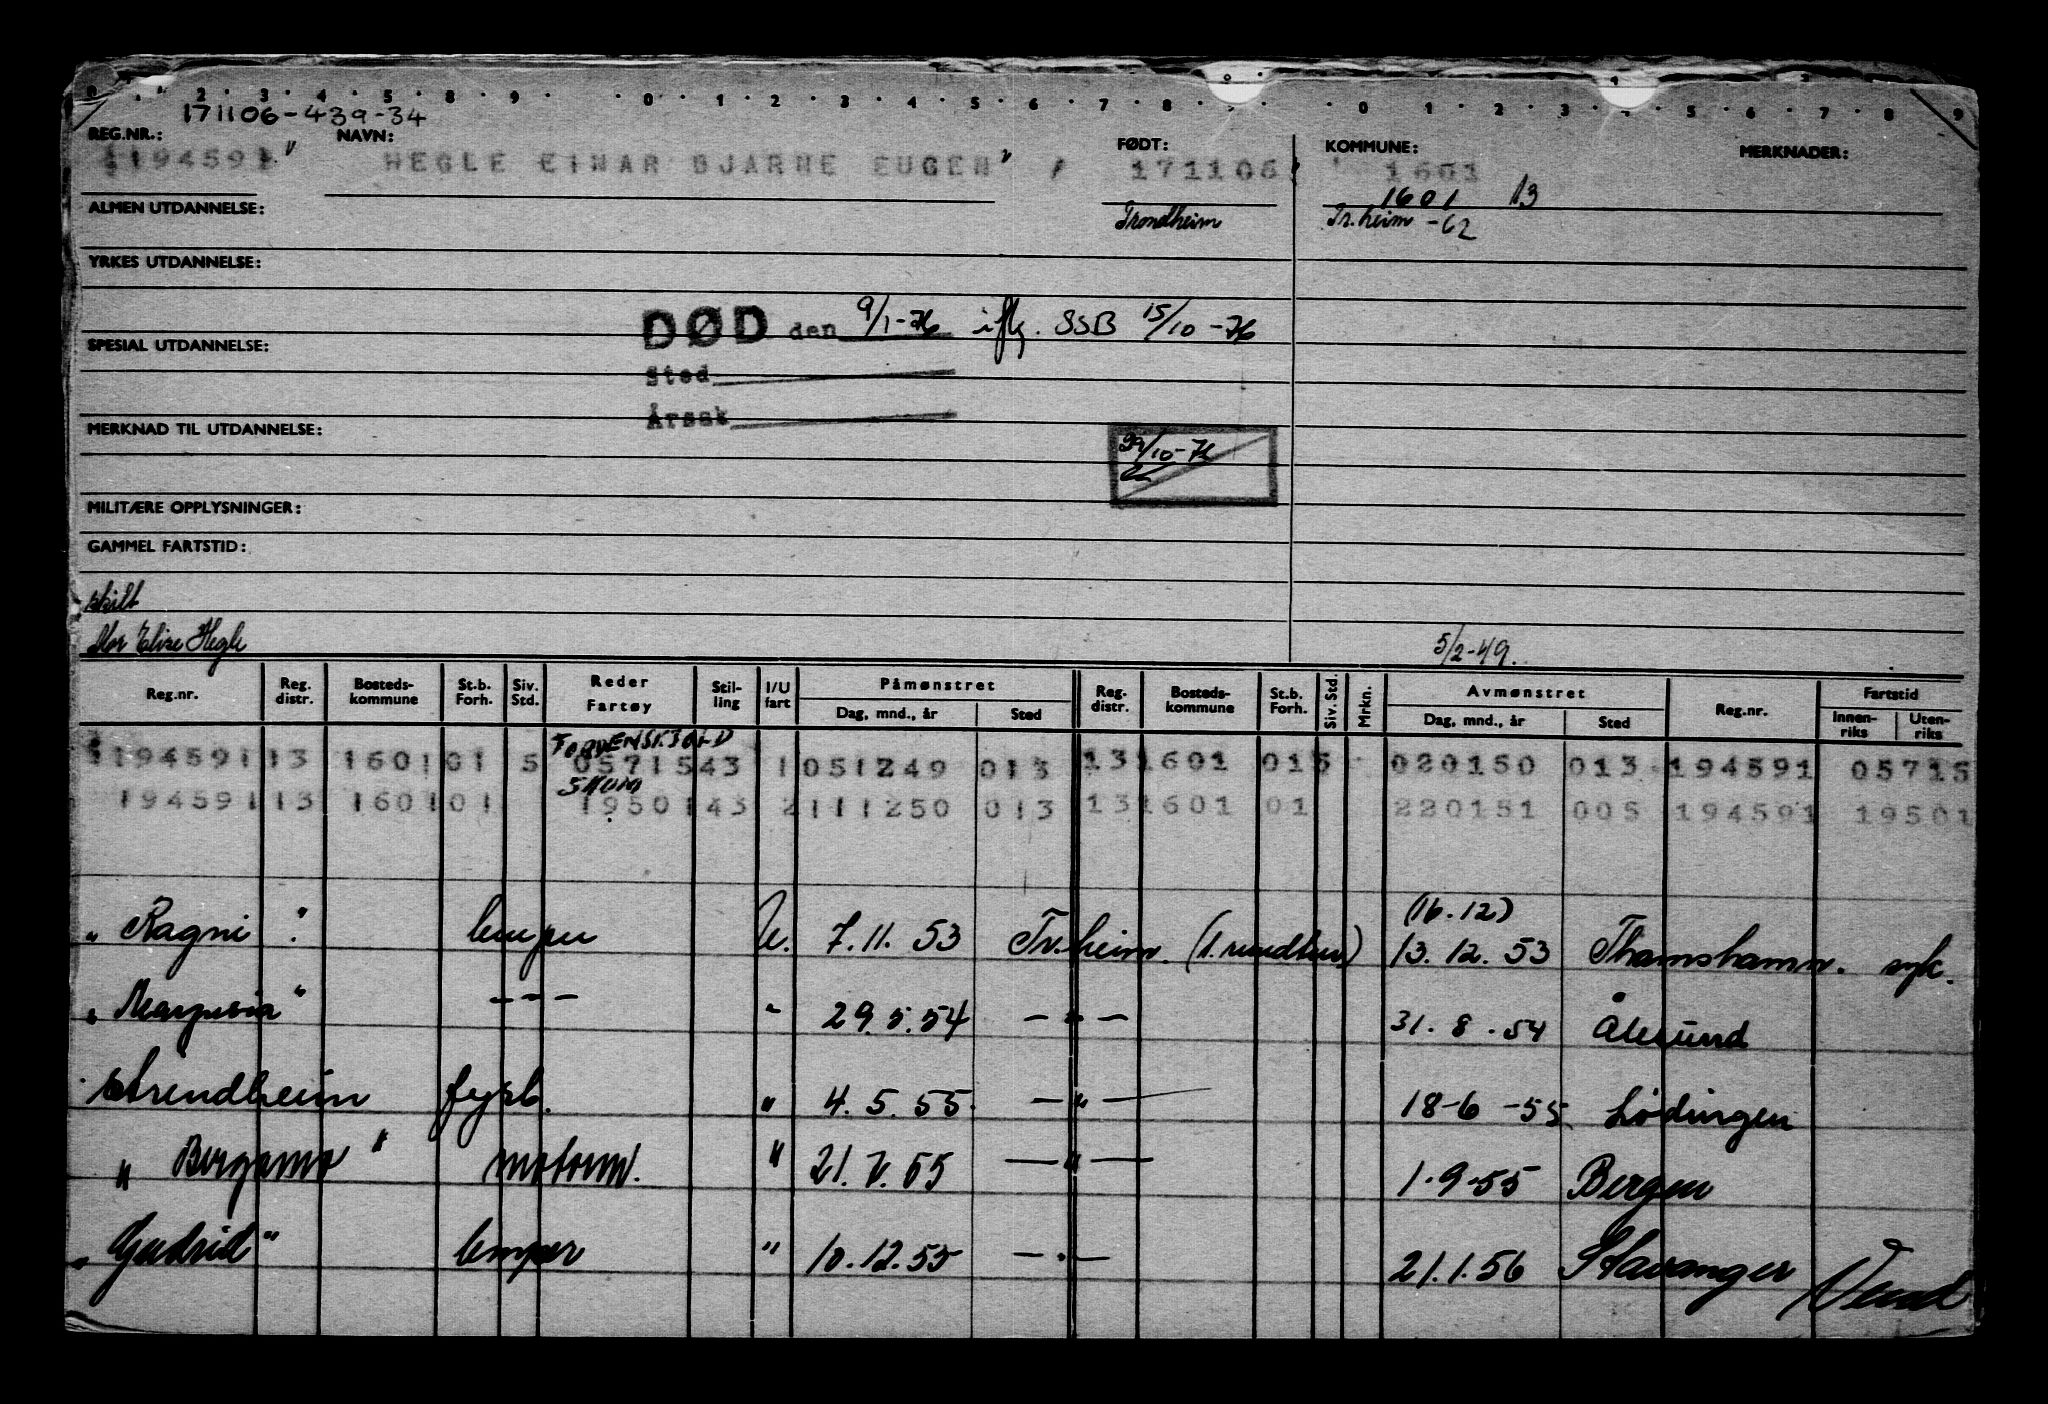 171106-439-34
REG.NR.: NAVN: FØDT: KOMMUNE: MERKNADER:
1194591" HEGLE EINAR BJARNE EUGEN" 171106 1601
1601 13
ALMEN UTDANNELSE: Trondheim Tr.heim -62
YRKES UTDANNELSE:
DØD den 9/1-76 iflg. SSB 15/10-76
SPESIAL UTDANNELSE:
Sted
Årsak
MERKNAD TIL UTDANNELSE:
29/10-76
MILITÆRE OPPLYSNINGER:
GAMMEL FARTSTID:
skilt
Mor Elise Hegle 5/2-49.
Reg.nr. Reg. distr. Bosteds-kommune St.b. Forh. Siv. Std. Reder Fartøy Stil-ling I/U fart Påmønstret Dag, mnd., år Sted Reg. distr. Bosteds-kommune St.b. Forh. Siv. Std. Mrkn. Avmønstret Dag, mnd., år Sted Reg.nr. Fartstid Innen-riks Uten-riks
TORDENSKJOLD
1194591 13 1601 01 5 05715 43 1 051249 013 13 1601 01 5 020150 013 194591 05715
SKUM
194591 13 1601 01 19501 43 2 111250 013 13 1601 01 220151 005 194591 19501
(16.12)
" Ragni " lemper U. 7.11.53 Tr.heim. 13.12.53 Thamshamn. syk.
" - " - " 29.5.54 - " - 31.8.54 Ålesund
fyrb. " 4.5.55. - " - 18-6-55 Lødingen
" Bergamo " motorm. " 21.V.55 - " - 1-9-55 Bergen
" Gudrid " lemper " 10.12.55 - " - 21.1.56 Stavanger Vend